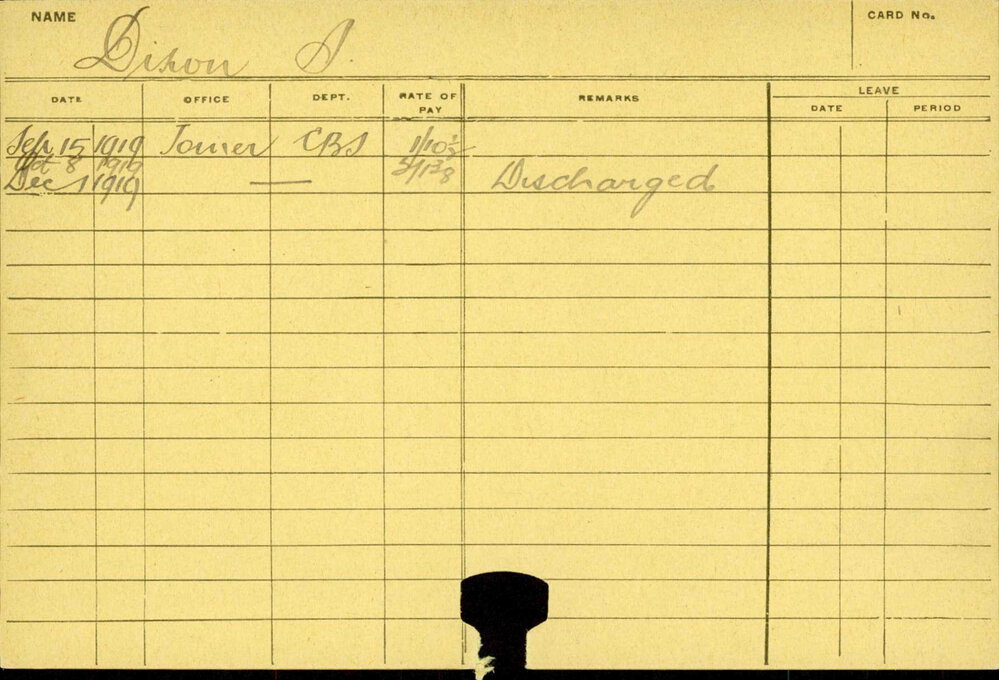 NAME Dixon S. CARD No.
DATE OFFICE DEPT. RATE OF PAY REMARKS LEAVE
DATE PERIOD
Sep 15 1919 Tower CBS 1/10½
Oct 8 1919
Dec 1 1919 — Discharged